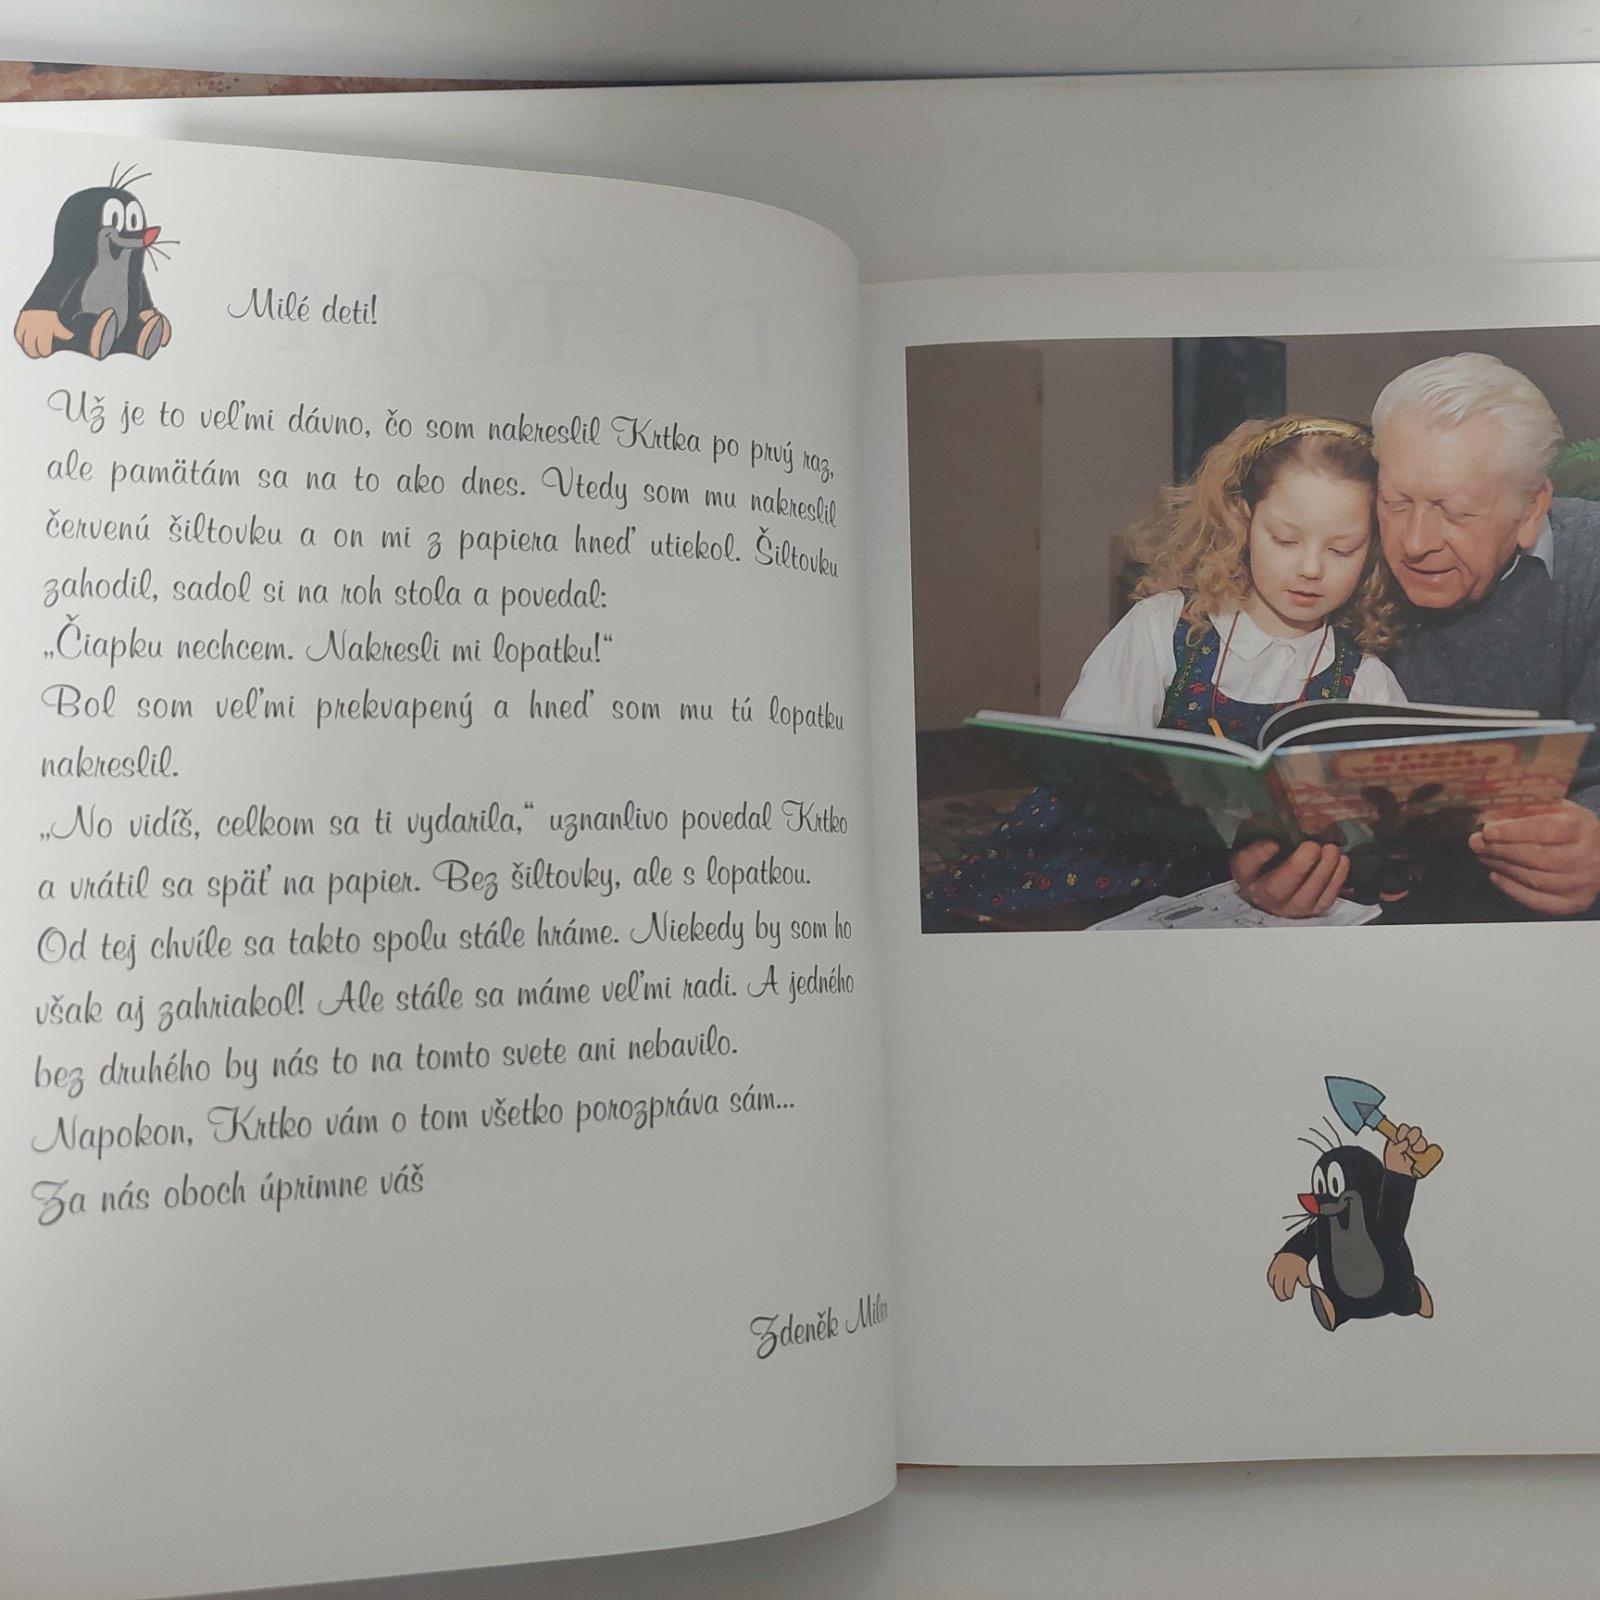 Milé deti!
Už je to veľmi dávno, čo som nakreslil Krtka po prvý raz,
ale pamätám sa na to ako dnes. Vtedy som mu nakreslil
červenú šiltovku a on mi z papiera hneď utiekol. Šiltovku
zahodil, sadol si na roh stola a povedal:
„Čiapku nechcem. Nakresli mi lopatku!“
Bol som veľmi prekvapený a hneď som mu tú lopatku
nakreslil.
„No vidíš, celkom sa ti vydarila,“ uznanlivo povedal Krtko
a vrátil sa späť na papier. Bez šiltovky, ale s lopatkou.
Od tej chvíle sa takto spolu stále hráme. Niekedy by som ho
však aj zahriakol! Ale stále sa máme veľmi radi. A jedného
bez druhého by nás to na tomto svete ani nebavilo.
Napokon, Krtko vám o tom všetko porozpráva sám...
Za nás oboch úprimne váš
Zdeněk Miler